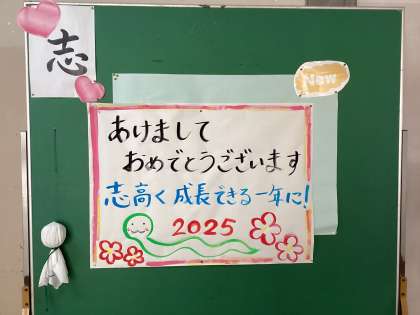 志
New
あけまして
おめでとうございます
志高く成長できる一年に!
2025